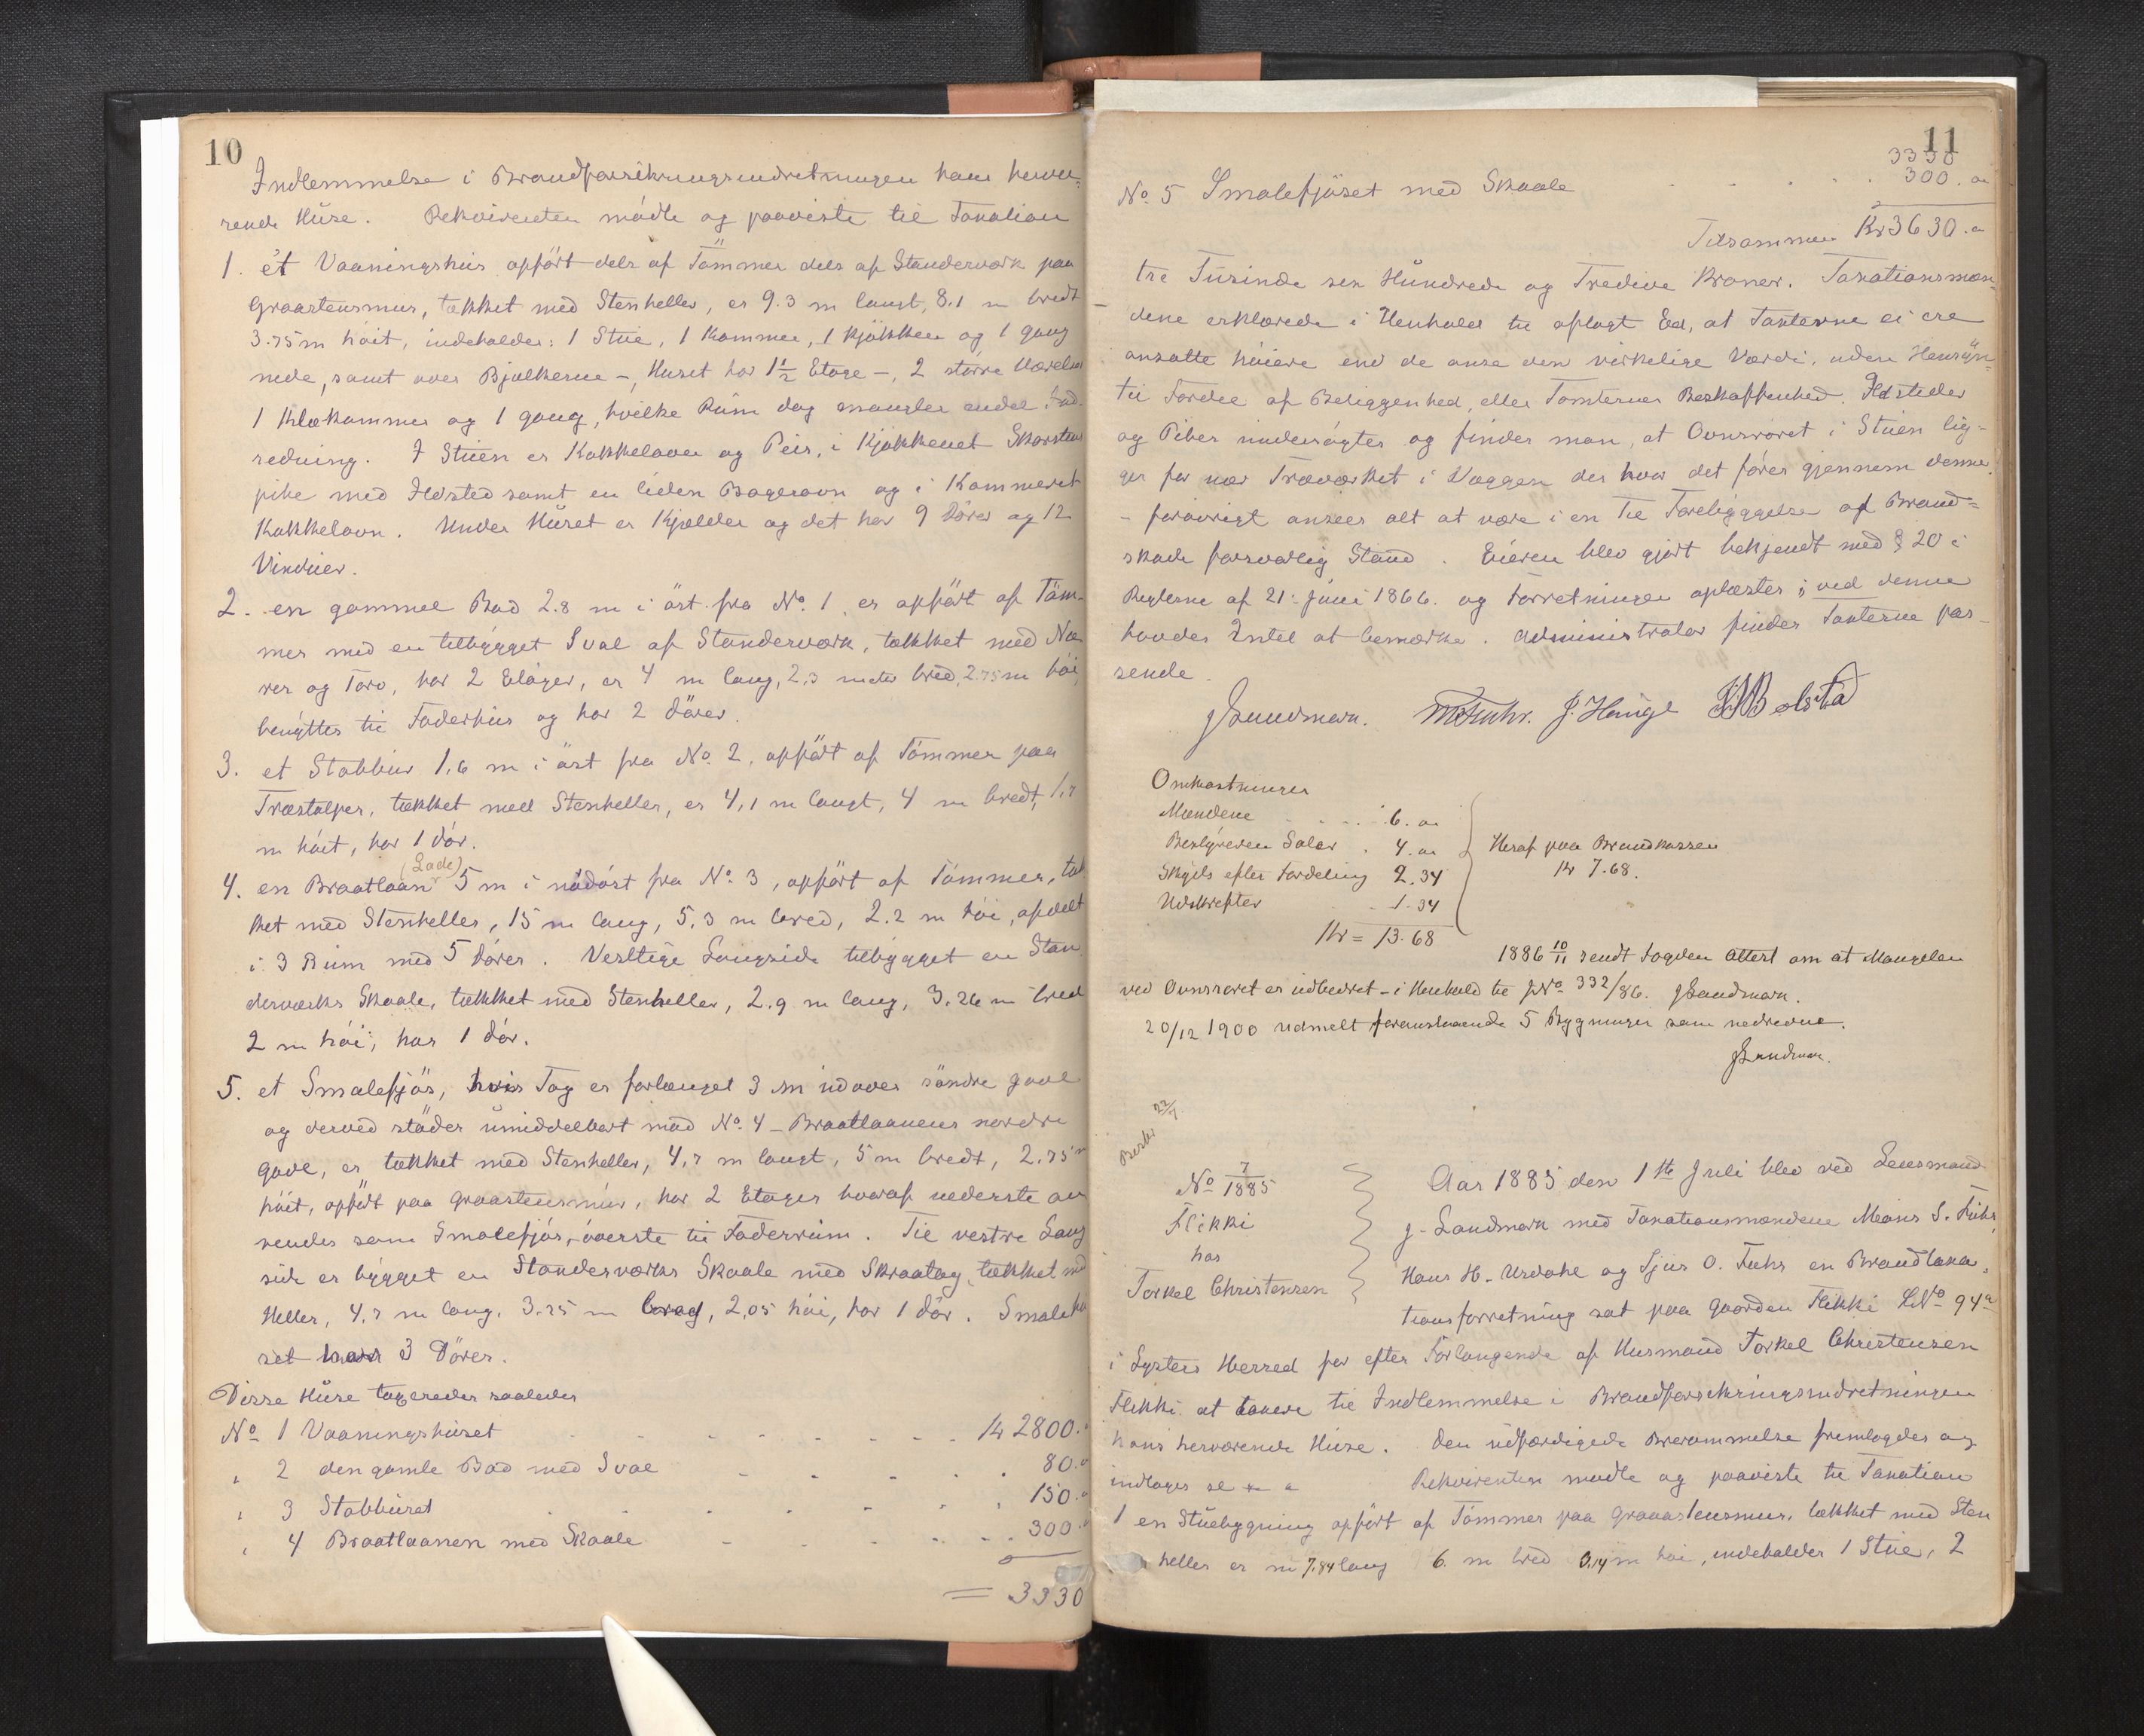 10
Indlemmelse i Brandforsikringsindretningen hans hervæ-
rende Huse. Rekvirenten mödte og paaviste til Taxation
1. et Vaaningshus opfört dels af Tömmer dels af Standerværk paa
Graastensmur, tækket med Stenheller, er 9.3 m langt, 8.1 m bredt
3.75 m höit, indeholder: 1 Stue, 1 Kammer, 1 Kjökken og 1 gang
nede, samt over Bjælkerne -, Huset har 1 1/2 Etage -, 2 större Værelser
1 Klækammer og 1 gang, hvilke Rum dog mangler endel Ind-
redning. I Stuen er Kakkelovn og Peis, i Kjökkenet Skorstens
pibe med Ildsted samt en liden Bagerovn og i Kammeret
Kakkelovn. Under Huset er Kjælder og det har 9 Dörer og 12
Vinduer.
2. en gammel Bod 2.8 m i öst fra No. 1, er opfört af Töm-
mer med en tilbygget Sval af Standerværk, tækket med Næ
ver og Torv, har 2 Etager, er 4 m lang, 2,3 meter bred, 2.75 m höi,
benyttes til Foderhus og har 2 Dörer.
3. et Stabbur 1,6 m i öst fra No. 2, opfört af Tömmer paa
Træstolper, tækket med Stenheller, er 4,1 m langt, 4 m bredt, 1,7
m höit, har 1 Dör.
(Lade)
4. en Braatlaan 5 m i nödöst fra No. 3, opfört af Tömmer, tæk
ket med Stenheller, 15 m lang, 5,3 m bred, 2.2 m höi, afdelt
i 3 Rum med 5 Dörer. Vestlige Langside tilbygget en Stan
derværks Skaale, tækket med Stenheller, 2.9 m lang, 3.26 m bred
2 m höi, har 1 Dör.
5. et Smalefjös, hvis Tag er forlænget 3 m udover söndre gavl
og derved stöder umiddelbart mod No. 4 - Braatlaanens nordre
gavl, er tækket med Stenheller, 4,7 m langt, 5 m bredt, 2.75 m
höit, opfört paa Graastensmur, har 2 Etager hvoraf nederste an
vendes som Smalefjös, överste til Foderrum. Til vestre Lang
side er bygget en Standerværks Skaale med Skraatag tækket med
Heller, 4,7 m lang, 3.25 m bred, 2,05 höi, har 1 Dör. Smalefjö
set har 3 Dörer.
Disse Huse taxeredes saaledes
No 1 Vaaningshuset Kr 2800.
" 2 den gamle Bod med Sval 80.
" 3 Stabburet 150.
" 4 Braatlaanen med Skaale 300
= 3330
11
3330
No. 5 Smalefjöset med Skaale 300. "
Tilsammen Kr 3630. "
tre Tusinde sex Hundrede og Tredive Kroner. Taxationsmæn-
dene erklærede i Henhold til aflagt Ed, at Taxterne ei ere
ansatte höiere end de anse den virkelige Værdi, uden Hensyn
til Fordel af Beliggenhed, eller Tomternes Beskaffenhed. Ildsteder
og Piber undersögtes og finder man, at Ovnsröret i Stuen lig-
ger for nær Træværket i Væggen der hvor det föres gjennem denne
- forövrigt ansees alt at være i en til Forebyggelse af Brand-
skade forsvarlig Stand. Eieren blev gjort bekjendt med § 20 i
Reglerne af 21. Juni 1866. og Forretningen oplæstes; ved denne
havdes Intet at bemærke. Administrator finder Taxterne pas-
sende.
J Landmark. M Fuhr. J. Hauge
Omkostninger
Mændene 6. "
Bestyreren Salær 4. "
Skyds efter Fordeling 2.34
Udskrifter 1.34
Kr = 13.68
Heraf paa Brandkassen
Kr 7.68.
1886 10/11 sendt Fogden Attest om at Mangelen
ved Ovnsröret er udbedret - i Henhold til JNo 332/86. J Landmark.
20/12 1900 udmeldt foranstaaende 5 Bygninger som nedrevne.
J Landmark.
No 7/1885
Flikki
hos
Torkel Christensen
Aar 1885 den 1ste Juli blev ved Lensmand
J. Landmark med Taxationsmændene Mons S. Fuhr,
Hans H. Urdahl og Sjur O. Fuhr en Brandtaxa-
tionsforretning sat paa Gaarden Flikki LNo 94a
i Lysters Herred for efter Forlangende af Husmand Torkel Christensen
Flikki at taxere til Indlemmelse i Brandforsikringsindretningen
hans herværende Huse. Den udfærdigede Berammelse fremlagdes og
indtages
Rekvirenten mødte og paaviste til Taxation
1 en Stuebygning opfört af Tömmer paa Graastensmur, tækket med Sten
heller er m 7.84 lang 6. m bred 3,14 m höi, indeholder 1 Stue, 2